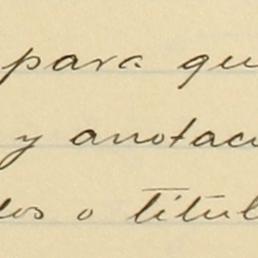 para qu
y anotac
dos o titul